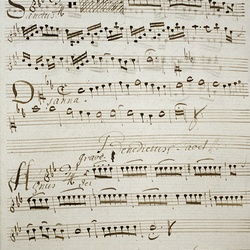 Sanctus
Osanna.
Benedictus tacet
grave
Agnus Dei